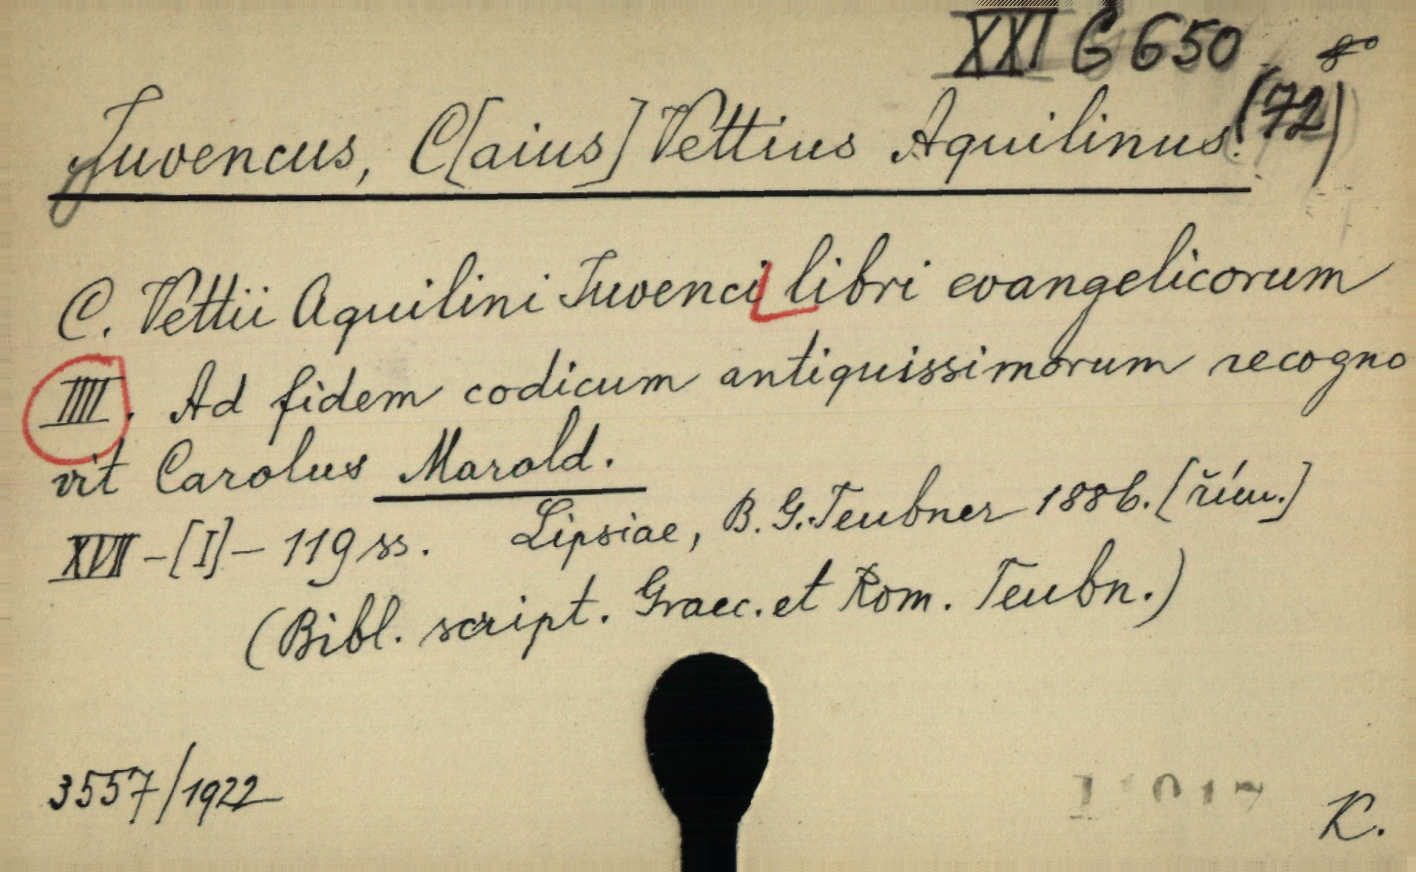 XXI G 650 8°
(72)
Juvencus, C[aius] Vettius Aquilinus.
C. Vettii Aquilini Iuvenci libri evangelicorum
IIII. Ad fidem codicum antiquissimorum recogno
vit Carolus Marold.
XVIII-[I]-119 ss. Lipsiae, B. G. Teubner 1886. [řím.]
(Bibl. script. Graec. et Rom. Teubn.)
3557/1922
K.